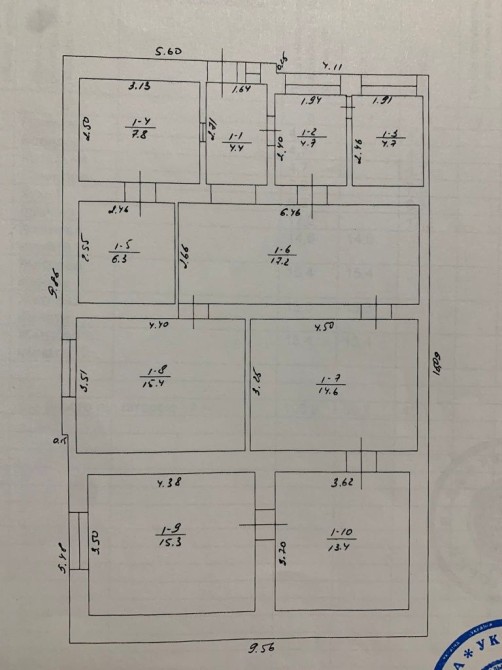 5.60
0.15
4.11
3.13
1.64
1.94
1.91
2.50
1-4
7.8
2.71
1-1
4.4
2.40
1-2
4.7
2.46
1-3
4.7
2.46
6.46
2.55
1-5
6.3
2.66
1-6
17.2
9.86
4.40
4.50
3.51
1-8
15.4
3.25
1-7
14.6
4.38
3.62
3.50
1-9
15.3
3.70
1-10
13.4
5.48
9.56
А * УК